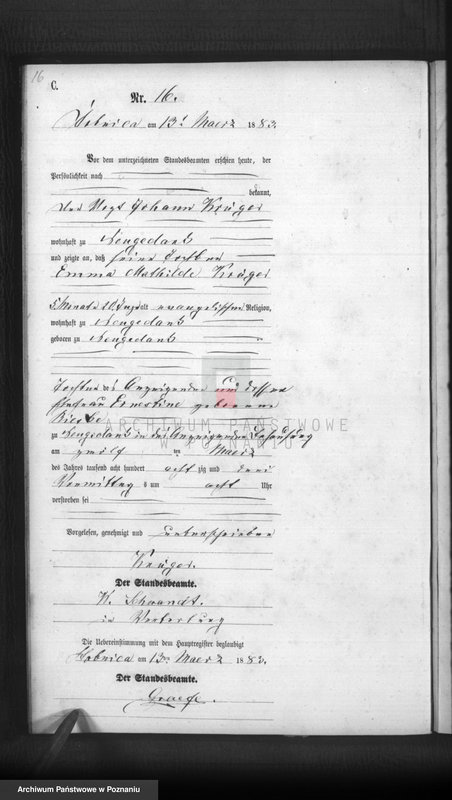 16
C.
Nr. 16.
am 13t Maerz 1883.
Vor dem unterzeichneten Standesbeamten erschien heute, der
Persönlichkeit nach
bekannt,
der Vogt Johann Krüger
wohnhaft zu Neugedank
und zeigte an, daß seine Tochter
Emma Mathilde Krüger
5 Monate 20 Tage alt, evangelischer Religion,
wohnhaft zu Neugedank
geboren zu Neugedank
Tochter des Anzeigenden und dessen
Ehefrau Ernestine geborene
zu Neugedank in des Anzeigenden Behausung
am zwölf ten Maerz
des Jahres tausend acht hundert acht zig und drei
Vormittag s um acht Uhr
verstorben sei
Vorgelesen, genehmigt und unterschrieben
Krüger.
Der Standesbeamte.
in Vertretung
Die Uebereinstimmung mit dem Hauptregister beglaubigt
am 13ten Maerz 1883.
Der Standesbeamte.
Graefe.
ARCHIWUM PAŃSTWOWE
W POZNANIU
Archiwum Państwowe w Poznaniu